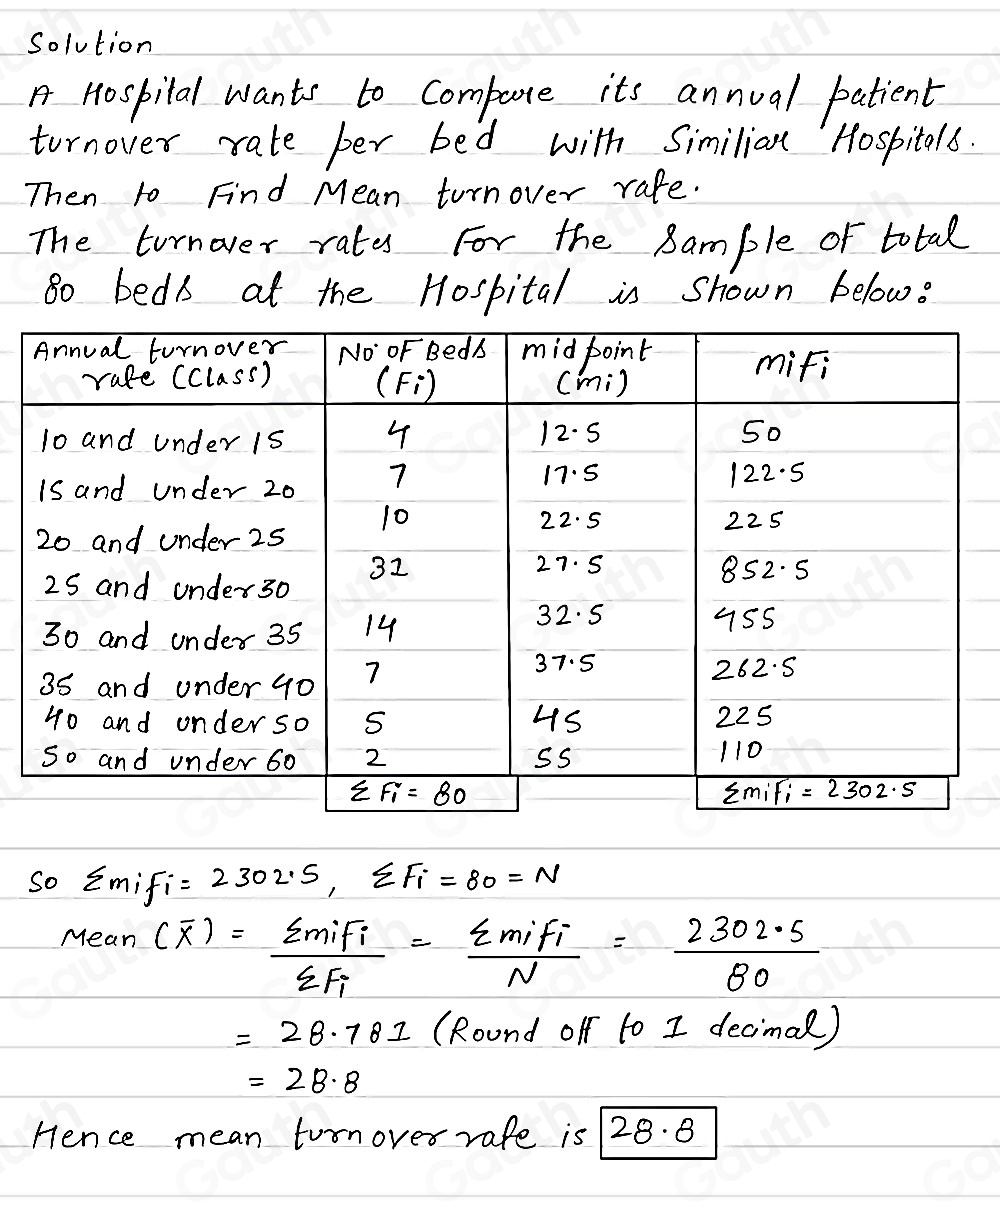 Solution
A Hospital wants to Compare its annual patient
turnover rate per bed with Similiar Hospitals.
Then to Find Mean turnover rate.
The turnover rates For the Sample of total
80 beds at the Hospital is Shown below:
Annual turnover rate (Class) No. of Beds (Fi) midpoint (mi) miFi
10 and under 15 4 12.5 50
15 and under 20 7 17.5 122.5
20 and under 25 10 22.5 225
25 and under 30 31 27.5 852.5
30 and under 35 14 32.5 455
35 and under 40 7 37.5 262.5
40 and under 50 5 45 225
50 and under 60 2 55 110
ΣFi = 80 Σmifi = 2302.5
So Σmifi = 2302.5, ΣFi = 80 = N
Mean (X̄) = ΣmiFi / ΣFi = Σmifi / N = 2302.5 / 80
= 28.781 (Round off to 1 decimal)
= 28.8
Hence mean turnover rate is 28.8